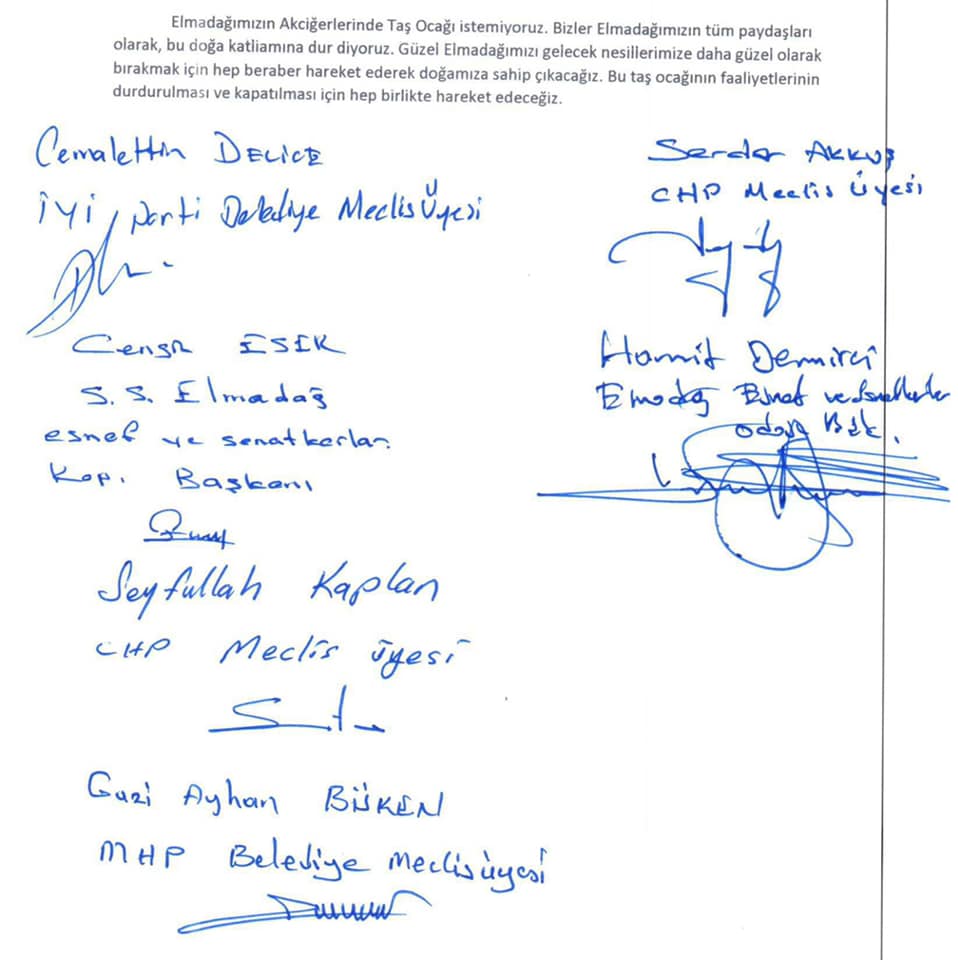 Elmadağımızın Akciğerlerinde Taş Ocağı istemiyoruz. Bizler Elmadağımızın tüm paydaşları
olarak, bu doğa katliamına dur diyoruz. Güzel Elmadağımızı gelecek nesillerimize daha güzel olarak
bırakmak için hep beraber hareket ederek doğamıza sahip çıkacağız. Bu taş ocağının faaliyetlerinin
durdurulması ve kapatılması için hep birlikte hareket edeceğiz.
Cemalettin DELİCE
İYİ parti Belediye Meclis Üyesi
Serdar AKKUŞ
CHP Meclis Üyesi
Cengiz ESEK
S.S. Elmadağ
esnef ve senatkerlar
Kop. Başkanı
Hamit Demirci
Elmadağ Esnaf ve Sanatkarlar
odası Bşk.
Seyfullah Kaplan
CHP Meclis üyesi
Gazi Ayhan BÜKEN
MHP Belediye Meclis üyesi